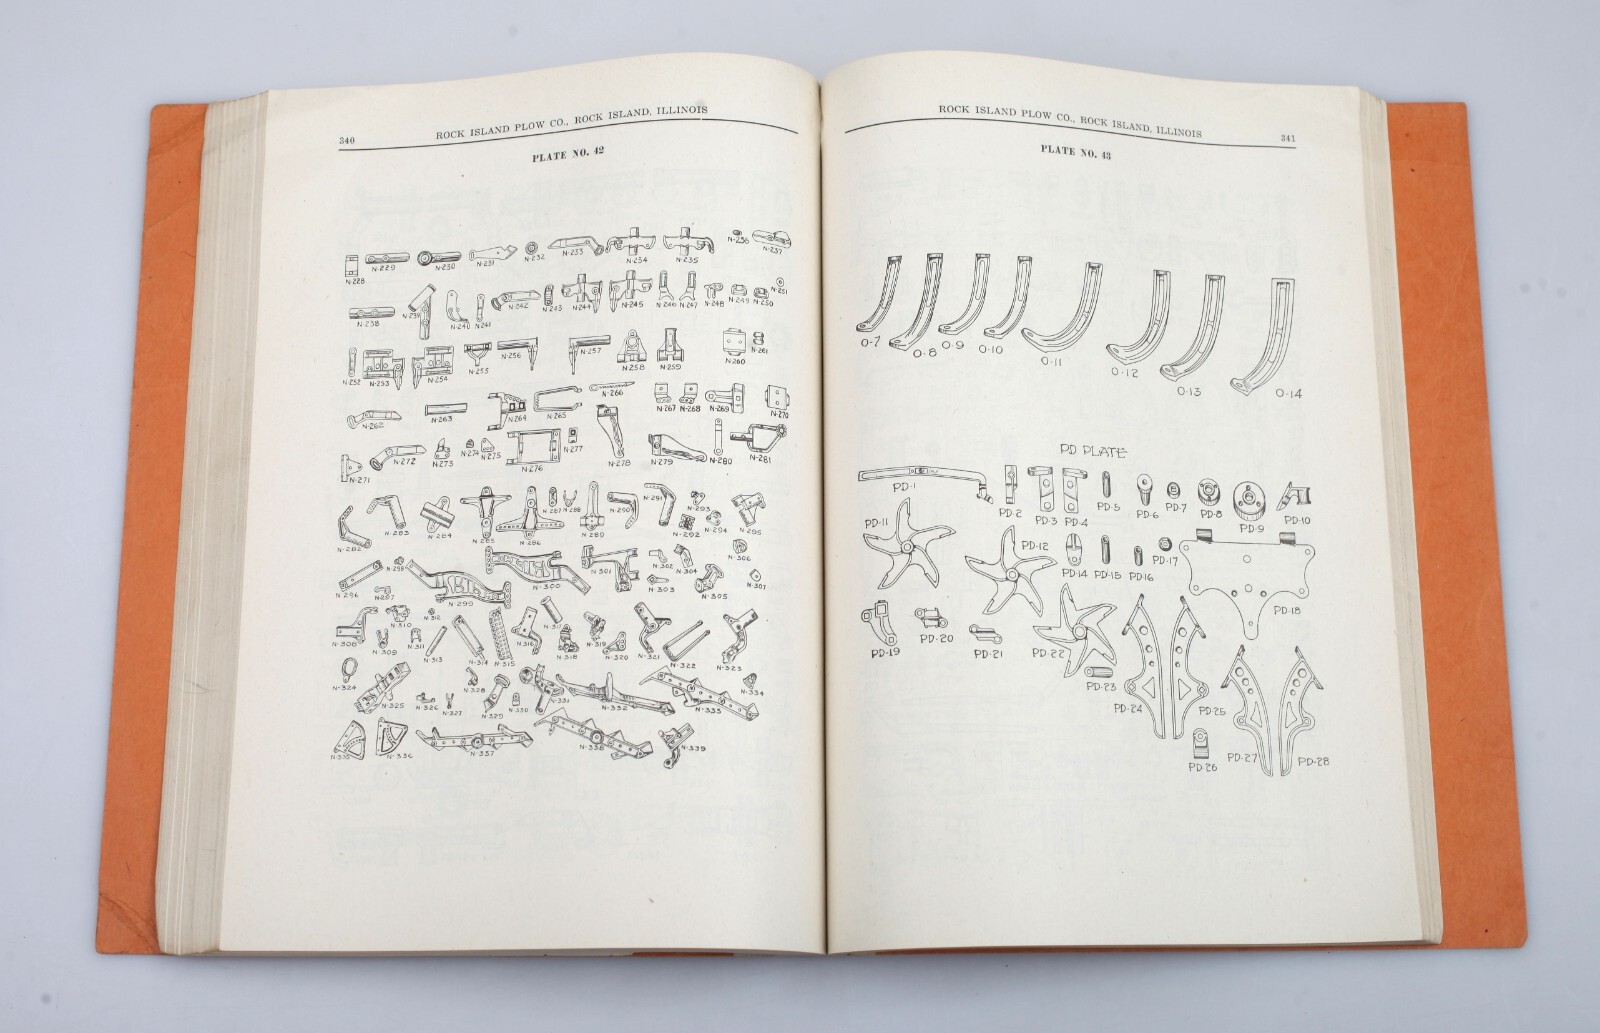 340 ROCK ISLAND PLOW CO., ROCK ISLAND, ILLINOIS
PLATE NO. 42
N-228 N-229 N-230 N-231 N-232 N-233 N-234 N-235 N-236 N-237
N-238 N-239 N-240 N-241 N-242 N-243 N-244 N-245 N-246 N-247 N-248 N-249 N-250 N-251
N-252 N-253 N-254 N-255 N-256 N-257 N-258 N-259 N-260 N-261
N-262 N-263 N-264 N-265 N-266 N-267 N-268 N-269 N-270
N-271 N-272 N-273 N-274 N-275 N-276 N-277 N-278 N-279 N-280 N-281
N-282 N-283 N-284 N-285 N-286 N-287 N-288 N-289 N-290 N-291 N-292 N-293 N-294 N-295
N-296 N-297 N-298 N-299 N-300 N-301 N-302 N-303 N-304 N-305 N-306 N-307
N-308 N-309 N-310 N-311 N-312 N-313 N-314 N-315 N-316 N-317 N-318 N-319 N-320 N-321 N-322 N-323
N-324 N-325 N-326 N-327 N-328 N-329 N-330 N-331 N-332 N-333 N-334
N-335 N-336 N-337 N-338 N-339
ROCK ISLAND PLOW CO., ROCK ISLAND, ILLINOIS 341
PLATE NO. 43
O-7 O-8 O-9 O-10 O-11 O-12 O-13 O-14
PD PLATE
PD-1 PD-2 PD-3 PD-4 PD-5 PD-6 PD-7 PD-8 PD-9 PD-10
PD-11 PD-12 PD-14 PD-15 PD-16 PD-17 PD-18
PD-19 PD-20 PD-21 PD-22 PD-23 PD-24 PD-25
PD-26 PD-27 PD-28